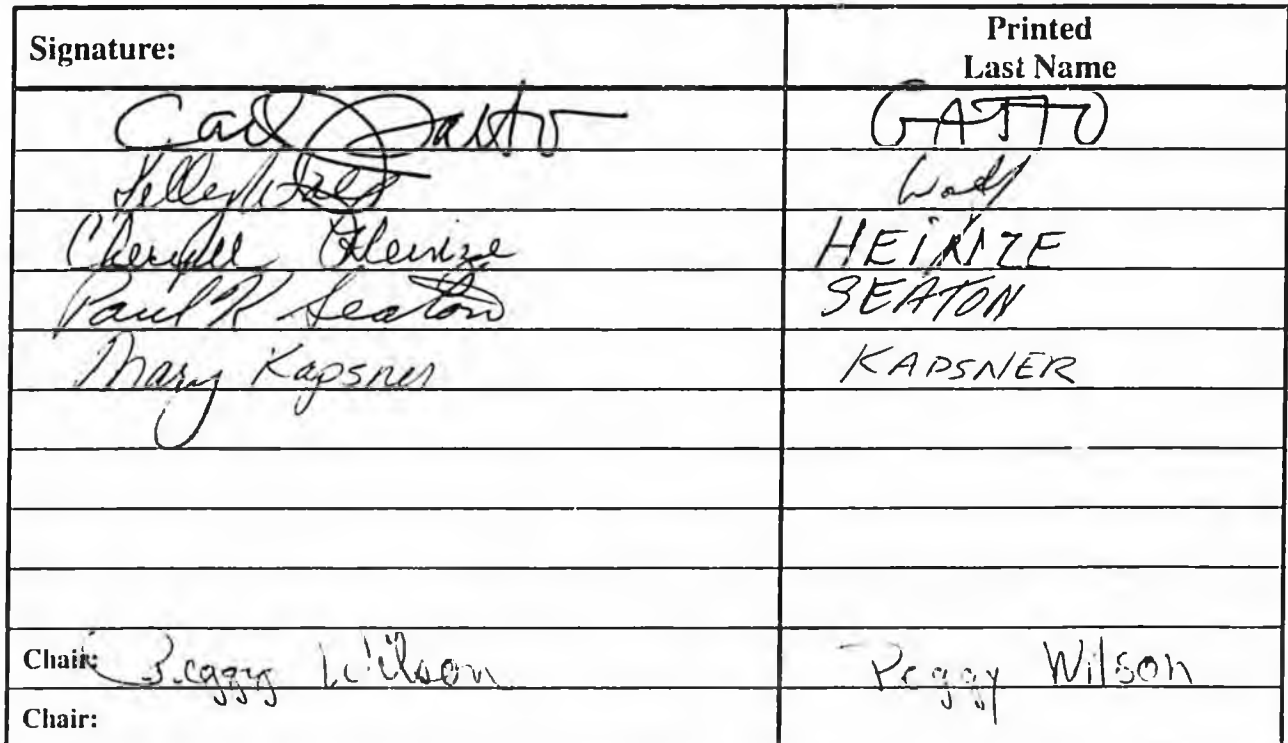 Signature: Printed
Last Name
Carl Gatto GATTO
Kelly Wolf Wolf
Cheryll Heinze HEINZE
Paul K Seaton SEATON
Mary Kapsner KAPSNER
Chair: Peggy Wilson Peggy Wilson
Chair: